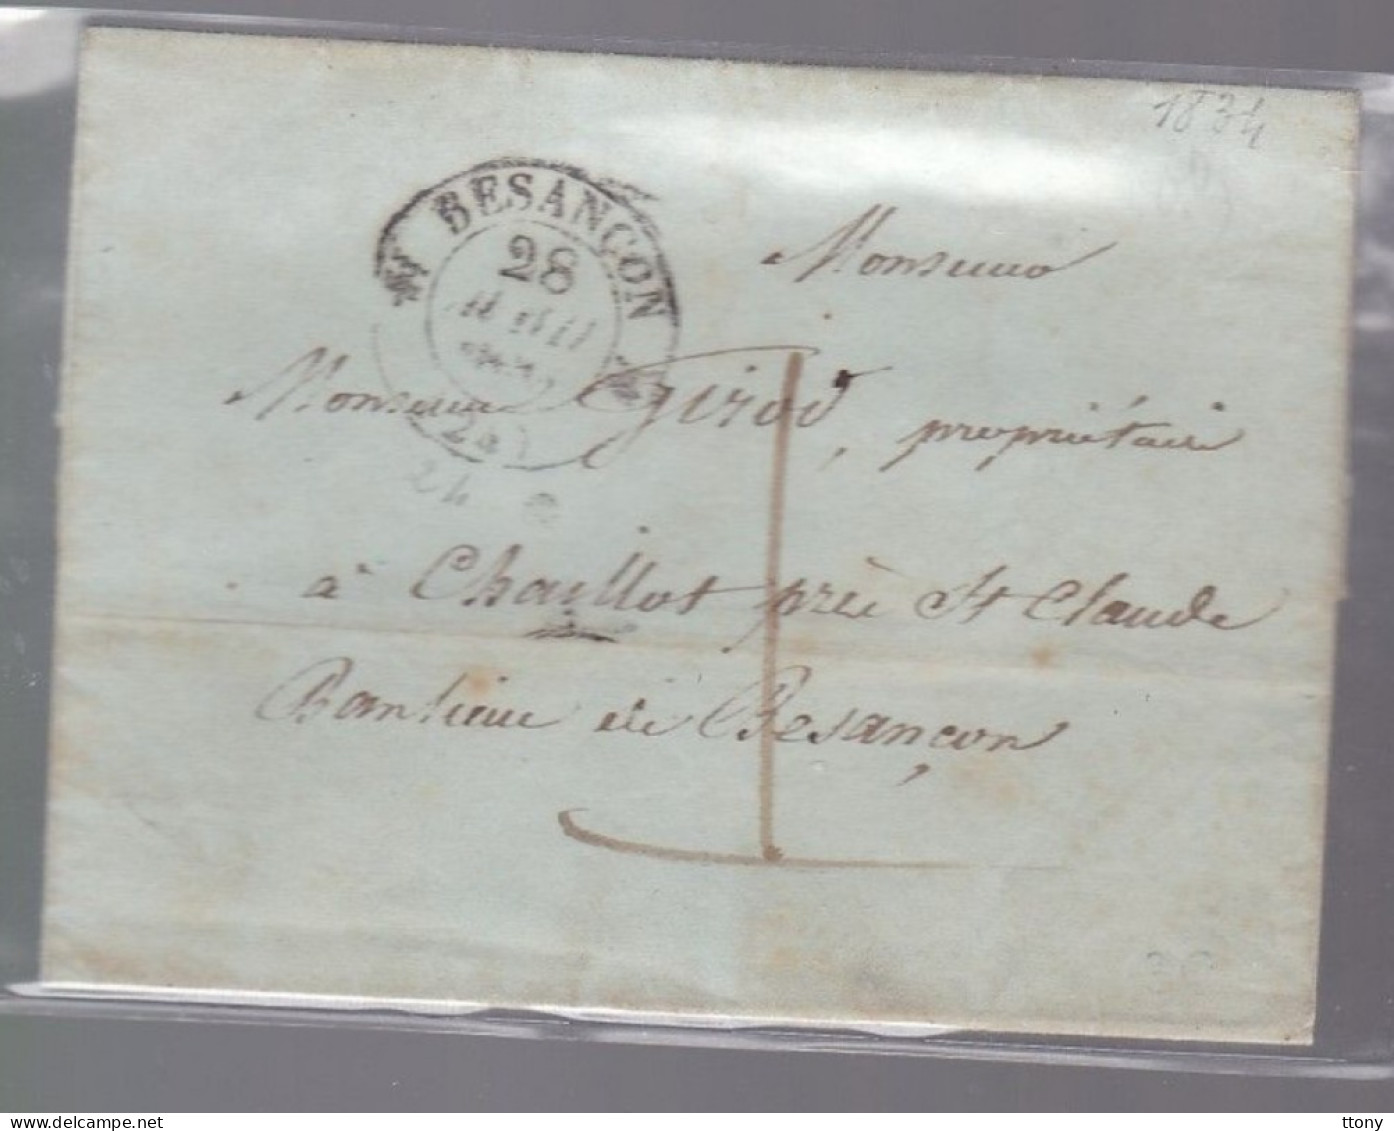 1834
BESANÇON
28
(24)
24
Monsieur
Monsieur Girod, propriétaire
à Chaillot près St Claude
Banlieue de Besançon
1
www.delcampe.net
ttony